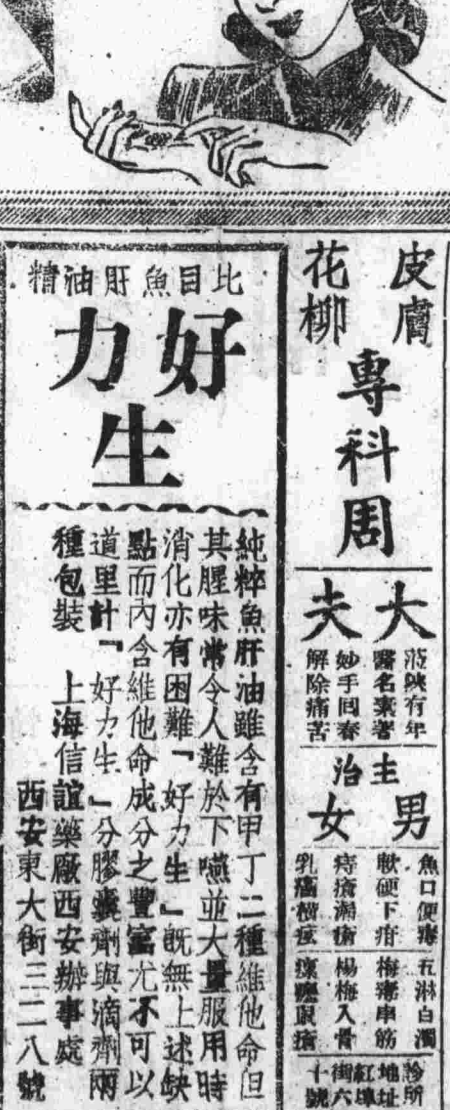 皮膚
花柳
專科周
大夫
蒞陝有年
醫名素著
妙手回春
解除痛苦
主治
男
女
魚口便毒
軟硬下疳
五淋白濁
梅毒串筋
楊梅入骨
診所
地址
紅埠
街六
十號
比目魚肝油精
好力生
純粹魚肝油雖含有甲丁二種維他命但
其腥味常令人難於下嚥並大量服用時
消化亦有困難『好力生』既無上述缺
點而內含維他命成分之豐富尤不可以
道里計『好力生』分膠囊劑與滴劑兩
種包裝 上海信誼藥廠西安辦事處
西安東大街三二八號